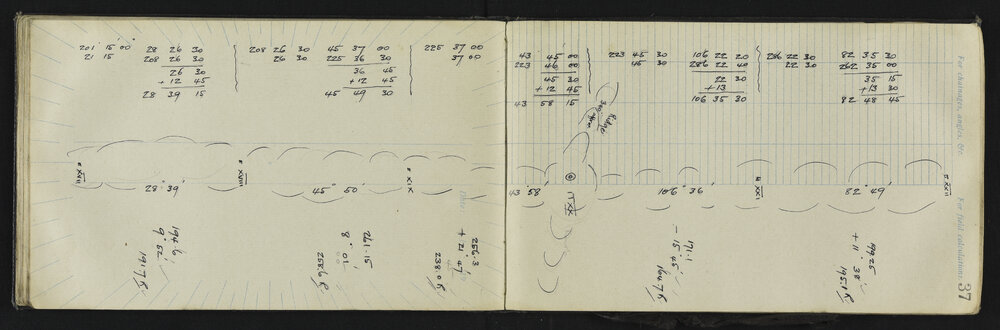 201 15 00
21 15
28 26 30
208 26 30
26 30
+ 12 45
28 39 15
208 26 30
26 30
45 37 00
225 36 30
36 45
+ 12 45
45 49 30
225 37 00
37 00
43 45 00
223 46 00
45 30
+ 12 45
43 58 15
223 45 30
45 30
106 22 20
286 22 40
22 30
+ 13
106 35 30
286 22 30
22 30
82 35 30
262 35 00
35 15
+ 13 30
82 48 45
For chainages, angles, &c.
Ridge
XVII
28° 39'
XVIII
45° 50'
XIX
43° 58'
XX
106° 36'
XXI
82° 49'
XXII
For field calculations.
194.6
9° 52'
261.15
8° 01'
256.3
+ 21 47
171.1
- 15° 45'
+ 11° 38'
37